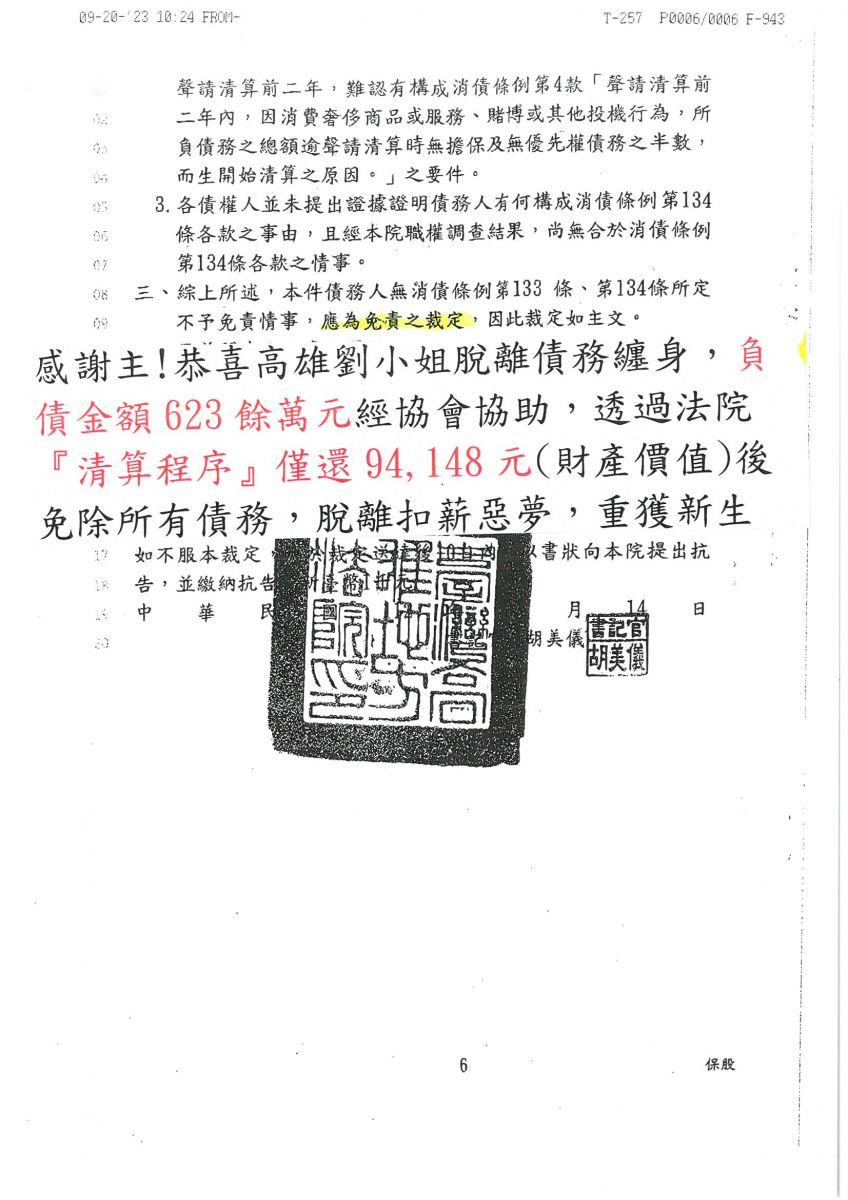 09-20-'23 10:24 FROM-
T-257 P0006/0006 F-943
聲請清算前二年，難認有構成消債條例第4款「聲請清算前
02 二年內，因消費奢侈商品或服務、賭博或其他投機行為，所
03 負債務之總額逾聲請清算時無擔保及無優先權債務之半數，
04 而生開始清算之原因。」之要件。
05 3.各債權人並未提出證據證明債務人有何構成消債條例第134
06 條各款之事由，且經本院職權調查結果，尚無合於消債條例
07 第134條各款之情事。
08 三、綜上所述，本件債務人無消債條例第133 條、第134條所定
09 不予免責情事，應為免責之裁定，因此裁定如主文。
感謝主!恭喜高雄劉小姐脫離債務纏身，負
債金額 623 餘萬元經協會協助，透過法院
『清算程序』僅還 94,148 元(財產價值)後
免除所有債務，脫離扣薪惡夢，重獲新生
17 如不服本裁定，於裁定送達後10日內以書狀向本院提出抗
18 告，並繳納抗告新臺幣1千元
19 中 華 民 國 月 14 日
20 書記 胡美儀
書記官
胡美儀
臺灣高
雄地方
法院印
6
保股